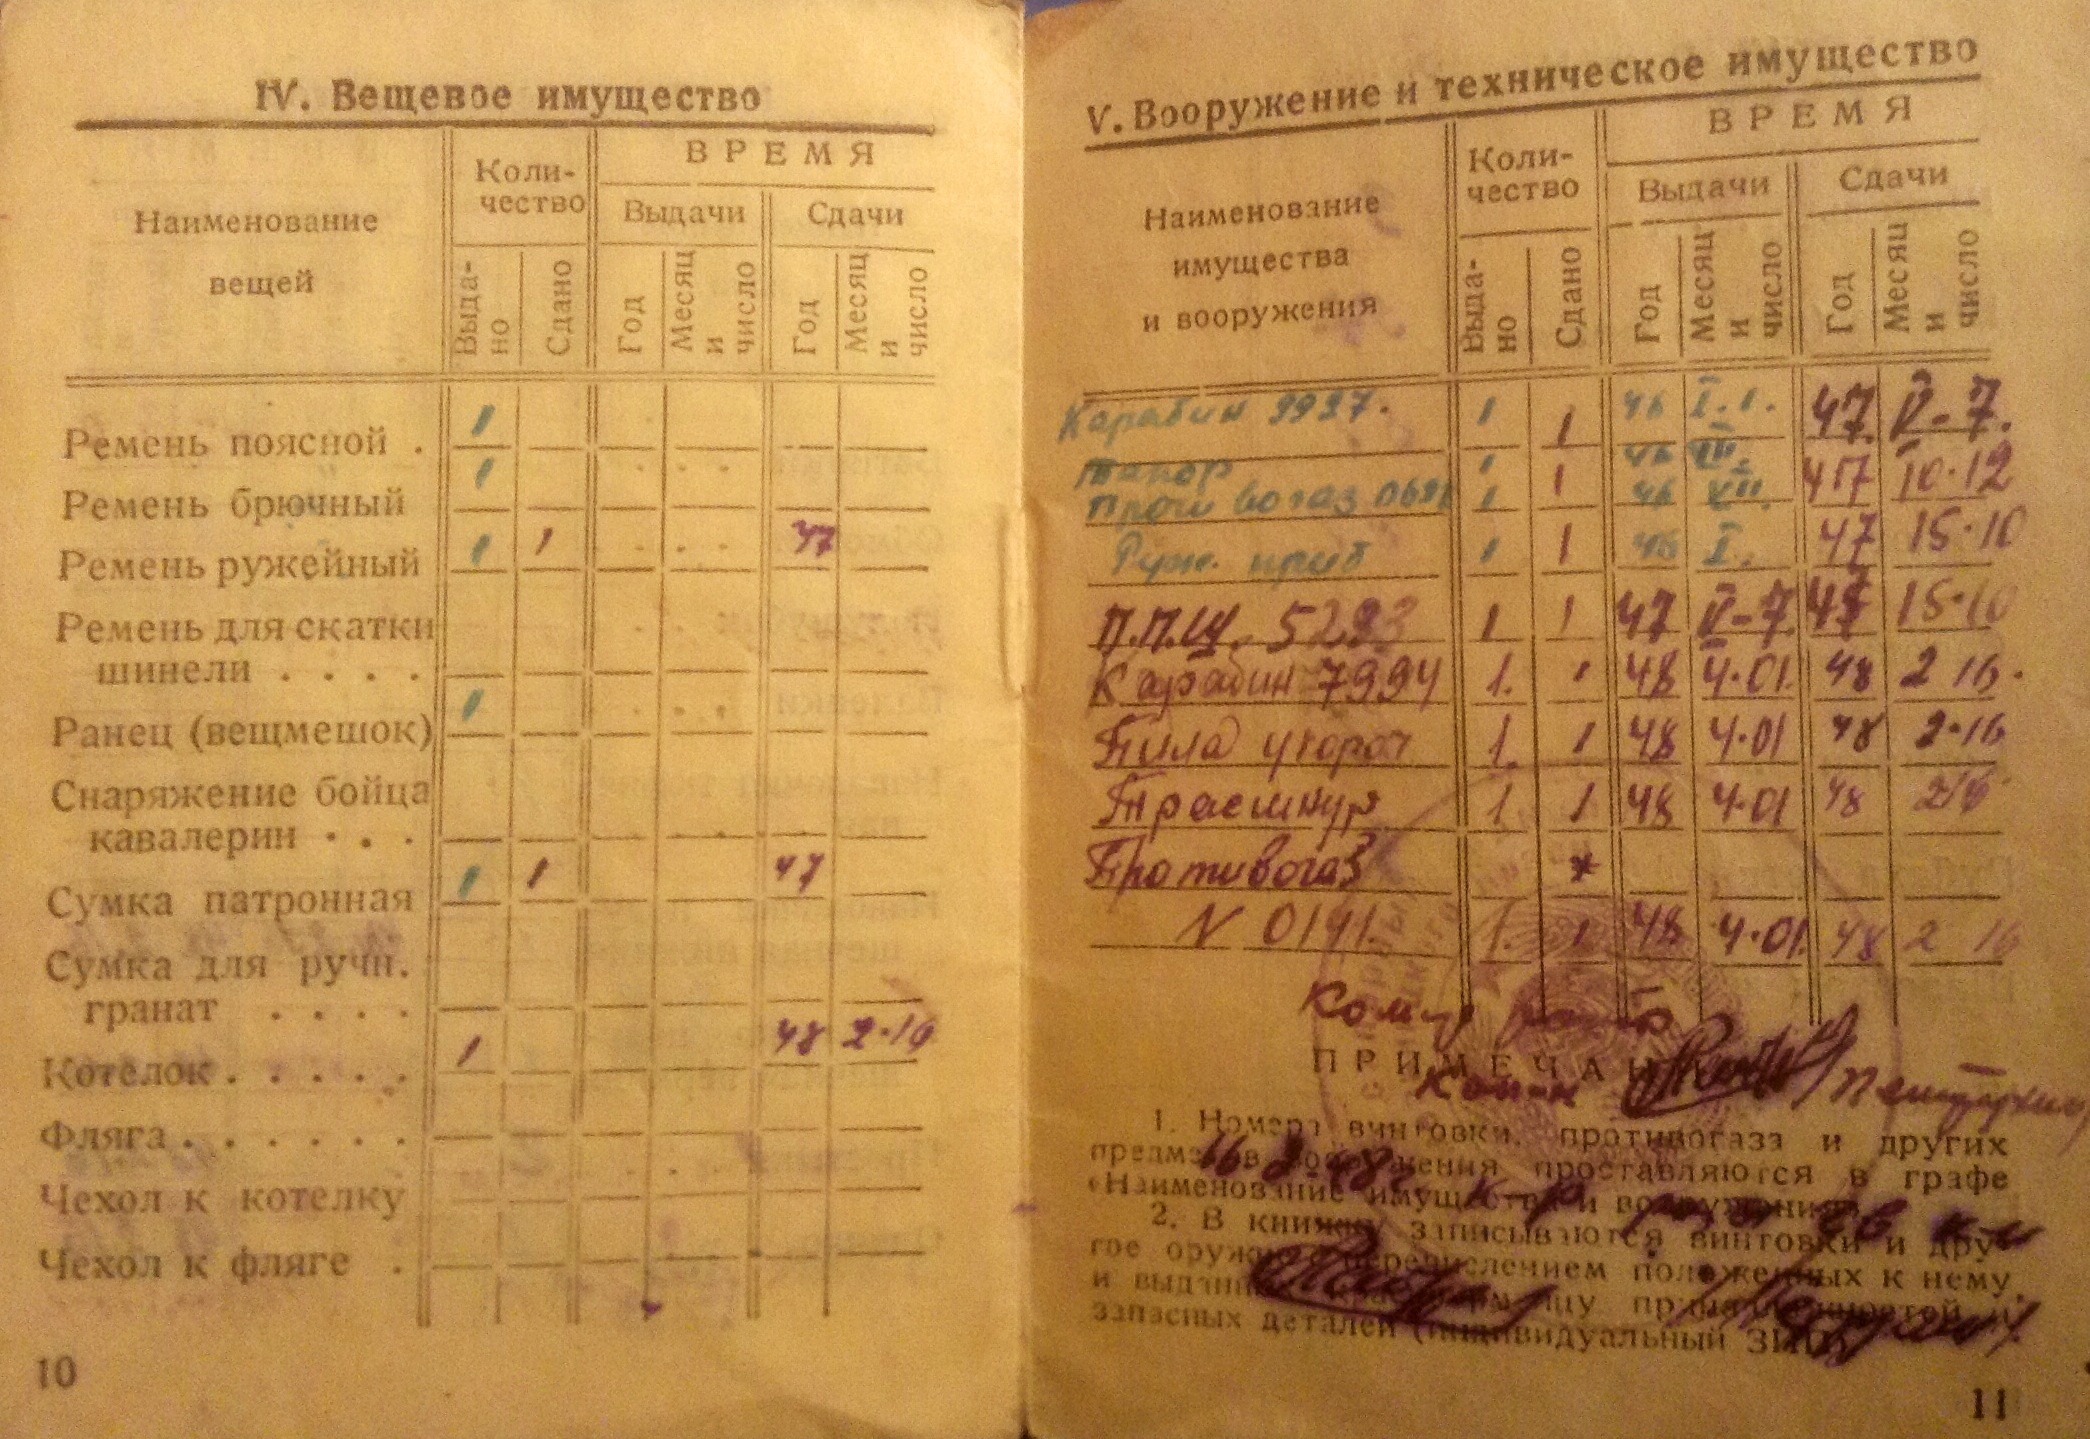 IV. Вещевое имущество
Наименование вещей
Коли-
чество
ВРЕМЯ
Выдачи
Сдачи
Выда-
но
Сдано
Год
Месяц и число
Год
Месяц и число
Ремень поясной . 1
Ремень брючный 1
Ремень ружейный 1 1 47
Ремень для скатки
шинели . . . .
Ранец (вещмешок) 1
Снаряжение бойца
кавалерии . . .
Сумка патронная 1 1 47
Сумка для ручн.
гранат . . . .
Котелок . . . . . 1 48 2·16
Фляга . . . . . .
Чехол к котелку
Чехол к фляге .
10
V. Вооружение и техническое имущество
Наименование
имущества
и вооружения
Коли-
чество
ВРЕМЯ
Выдачи
Сдачи
Выда-
но
Сдано
Год
Месяц и число
Год
Месяц и число
Карабин 9927. 1 1 46 I. 1. 47. V-7.
Топор 1 1 46 47 10·12
Противогаз 1 46 VII.
Руж. приб 1 1 46 I. 47 15·10
П.П.Ш. 5293 1 1 47 V-7. 47 15·10
Карабин 7994 1. 1 48 4·01. 48 2 16.
Пила 1. 1 48 4·01 48 2·16
1 1 48 4·01 48 2 16
Противогаз *
N 0141. 1. 1 48 4·01. 48 2 16
Ком-р роты
ПРИМЕЧАН
1. Номера винтовки, противогаза и других
предметов вооружения проставляются в графе
«Наименование имущества и вооружения».
16 2-48г. к-р роты
2. В книжку записываются винтовки и дру-
гое оружие с перечислением положенных к нему
и выданных красноармейцу принадлежностей и
запасных деталей (индивидуальный ЗИП).
11